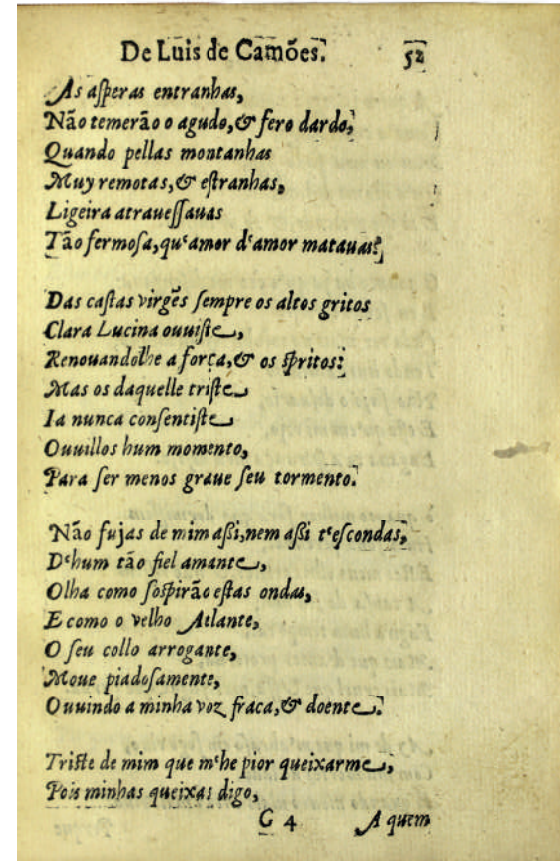 De Luis de Camões. 52
As asperas entranhas,
Não temerão o agudo, & fero dardo,
Quando pellas montanhas
Muy remotas, & estranhas,
Ligeira atrauessauas
Tão fermosa, qu'amor d'amor matauas?

Das castas virgẽs sempre os altos gritos
Clara Lucina ouuiste,
Renouandolhe a força, & os spritos:
Mas os daquelle triste
Ia nunca consentiste
Ouuillos hum momento,
Para ser menos graue seu tormento.

Não fujas de mim assi, nem assi t'escondas,
D'hum tão fiel amante,
Olha como sospirão estas ondas,
E como o velho Atlante,
O seu collo arrogante,
Moue piadosamente,
Ouuindo a minha voz fraca, & doente.

Triste de mim que m'he pior queixarme,
Pois minhas queixas digo,
G 4 A quem